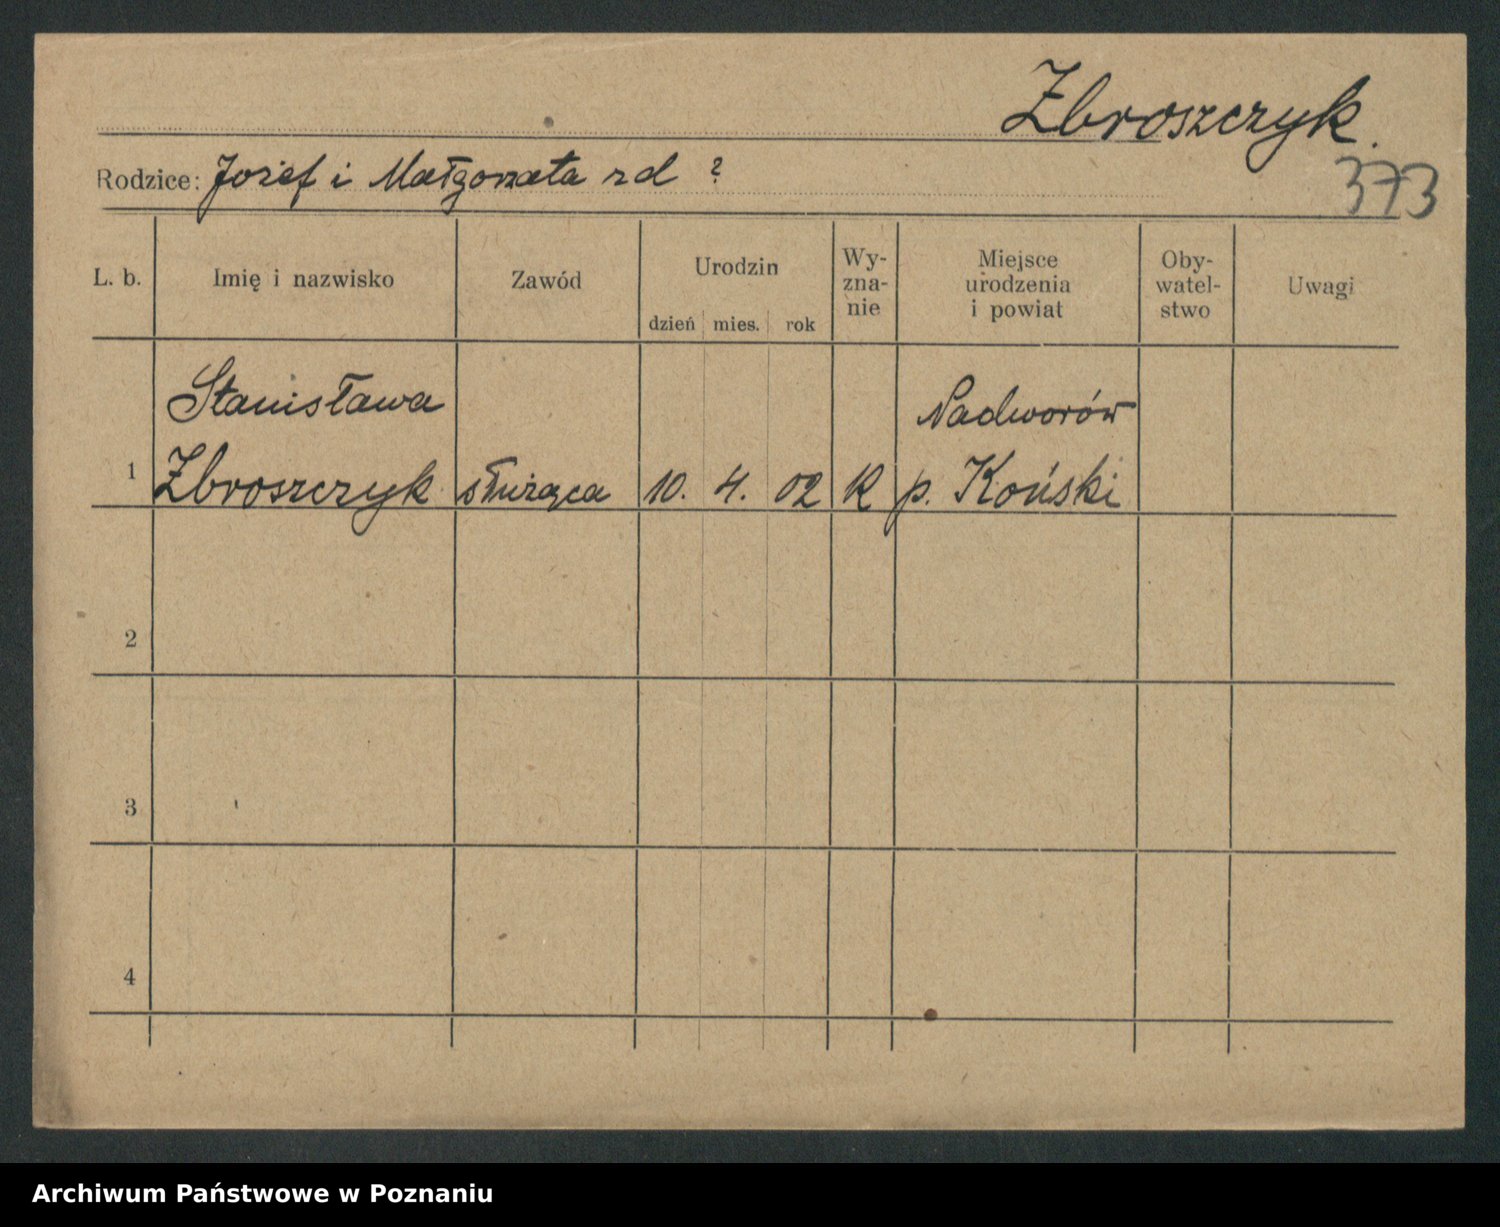 Zbroszczyk.
373
Rodzice: Józef i Małgorzata zd ?
L. b.
Imię i nazwisko
Zawód
Urodzin
dzień mies. rok
Wy-
zna-
nie
Miejsce
urodzenia
i powiat
Oby-
watel-
stwo
Uwagi
Stanisława Nadworów
1 Zbroszczyk służąca 10. 4. 02 R p. Koński
2
3
4
Archiwum Państwowe w Poznaniu